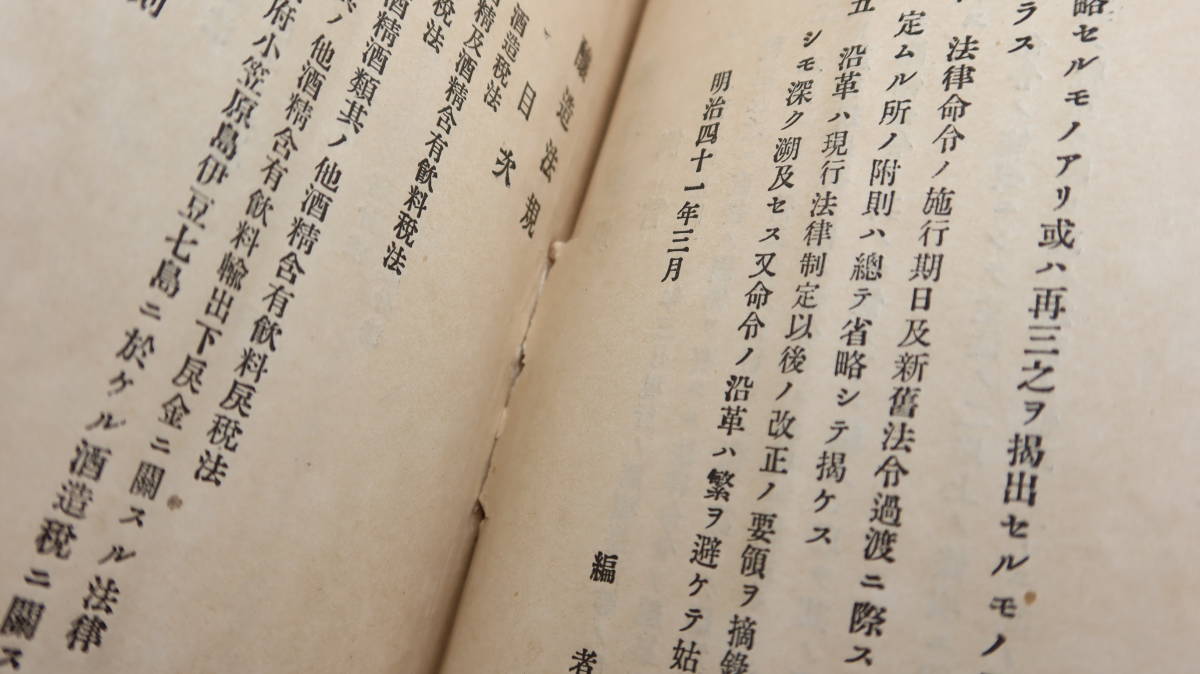 略セルモノアリ或ハ再三之ヲ揭出セルモノ
ラス
法律命令ノ施行期日及新舊法令過渡ニ際ス
定ムル所ノ附則ハ總テ省略シテ揭ケス
五 沿革ハ現行法律制定以後ノ改正ノ要領ヲ摘錄
シモ深ク溯及セス又命令ノ沿革ハ繁ヲ避ケテ姑
明治四十一年三月
編者
釀造法規
目次
酒造稅法
酒精及酒精含有飮料稅法
酒稅法
酒精酒類其ノ他酒精含有飮料戾稅法
其ノ他酒精含有飮料輸出下戾金ニ關スル法律
府小笠原島伊豆七島ニ於ケル酒造稅ニ關ス
則